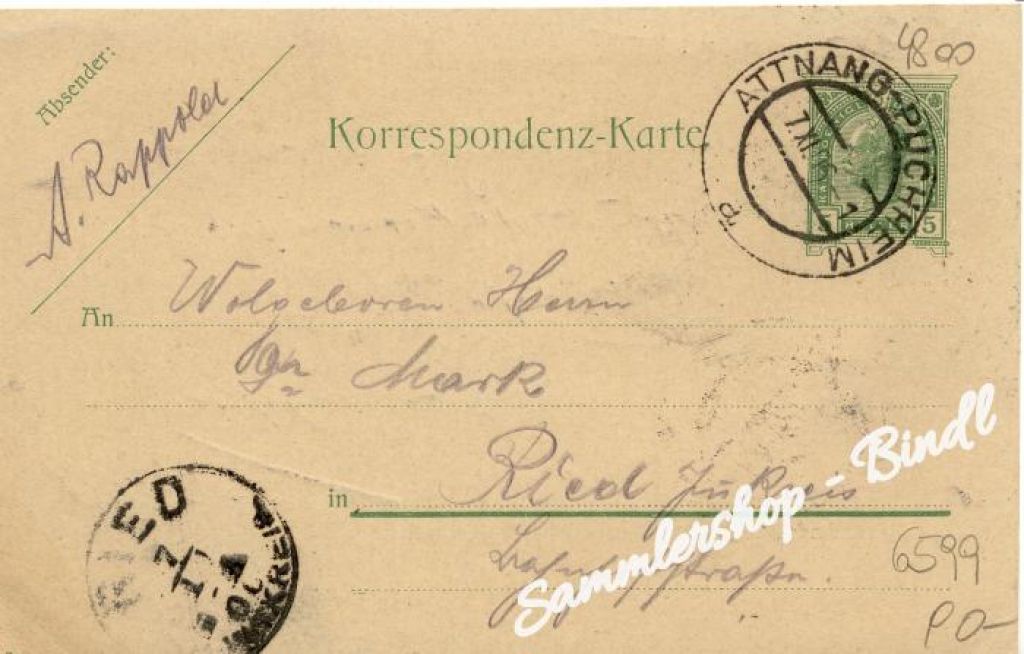 4800
Absender:
A. Rappold
Korrespondenz-Karte
ATTNANG-PUCHHEIM
7.XI.
5 5
An Wolgeboren Herrn
Mark
in Ried Innkreis
Bahnhofstraße.
RIED
INNKREIS
6599
PO-
Sammlershop - Bindl